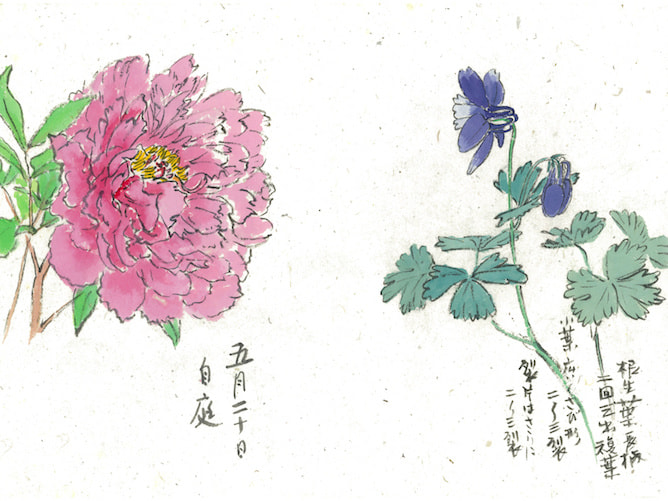 根生葉長柄
二回三出複葉
小葉広いくさび形
二〜三裂
裂片はさらに
二〜三裂
五月二十日
自庭